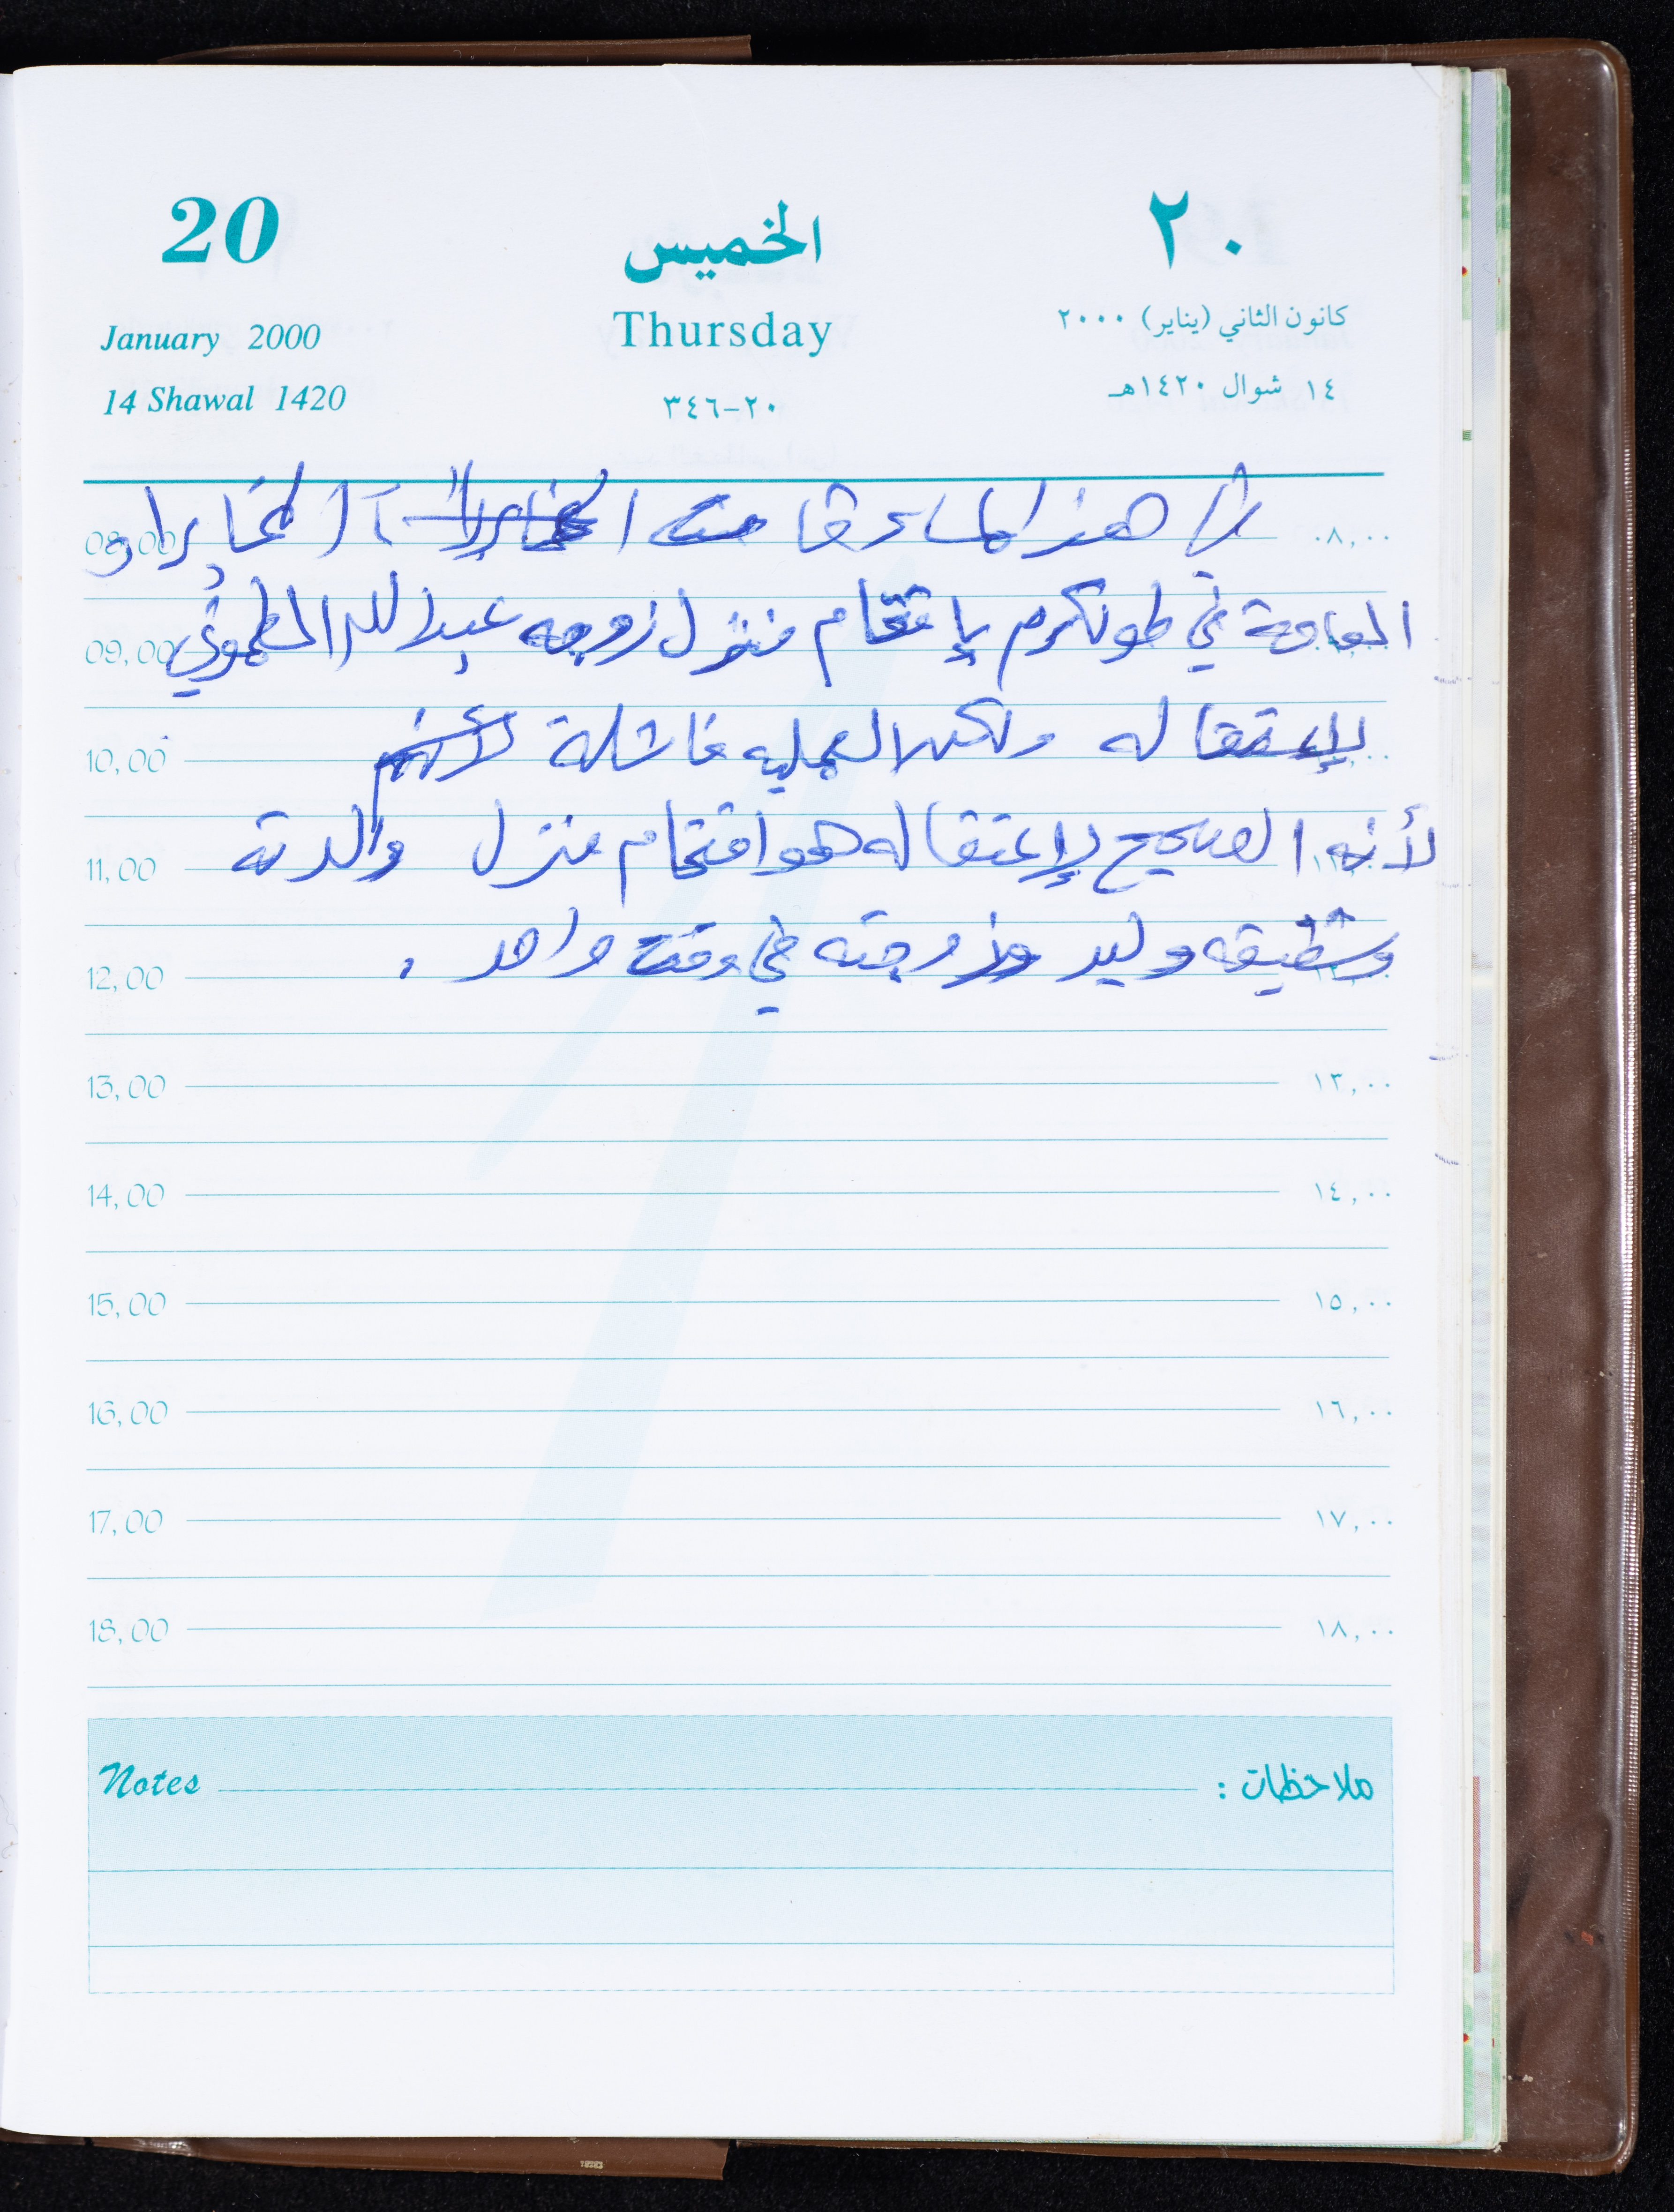 20 الخميس ٢٠
January 2000 Thursday كانون الثاني (يناير) ٢٠٠٠
14 Shawal 1420 ٢٠-٣٤٦ ١٤ شوال ١٤٢٠هـ
هذا المساء قامت المخابرات
08,00 ٠٨,٠٠
العامة في طولكرم بإقتحام منزل زوجه عبدالله
09,00
لإعتقاله ولكن العمليه فاشلة لأنهم
10,00
لأنه الصحيح لإعتقاله هو اقتحام منزل والدته
11,00
وشقيقه وليد وزوجته في وقت واحد .
12,00
13,00 ١٣,٠٠
14,00 ١٤,٠٠
15,00 ١٥,٠٠
16,00 ١٦,٠٠
17,00 ١٧,٠٠
18,00 ١٨,٠٠
Notes ملاحظات :